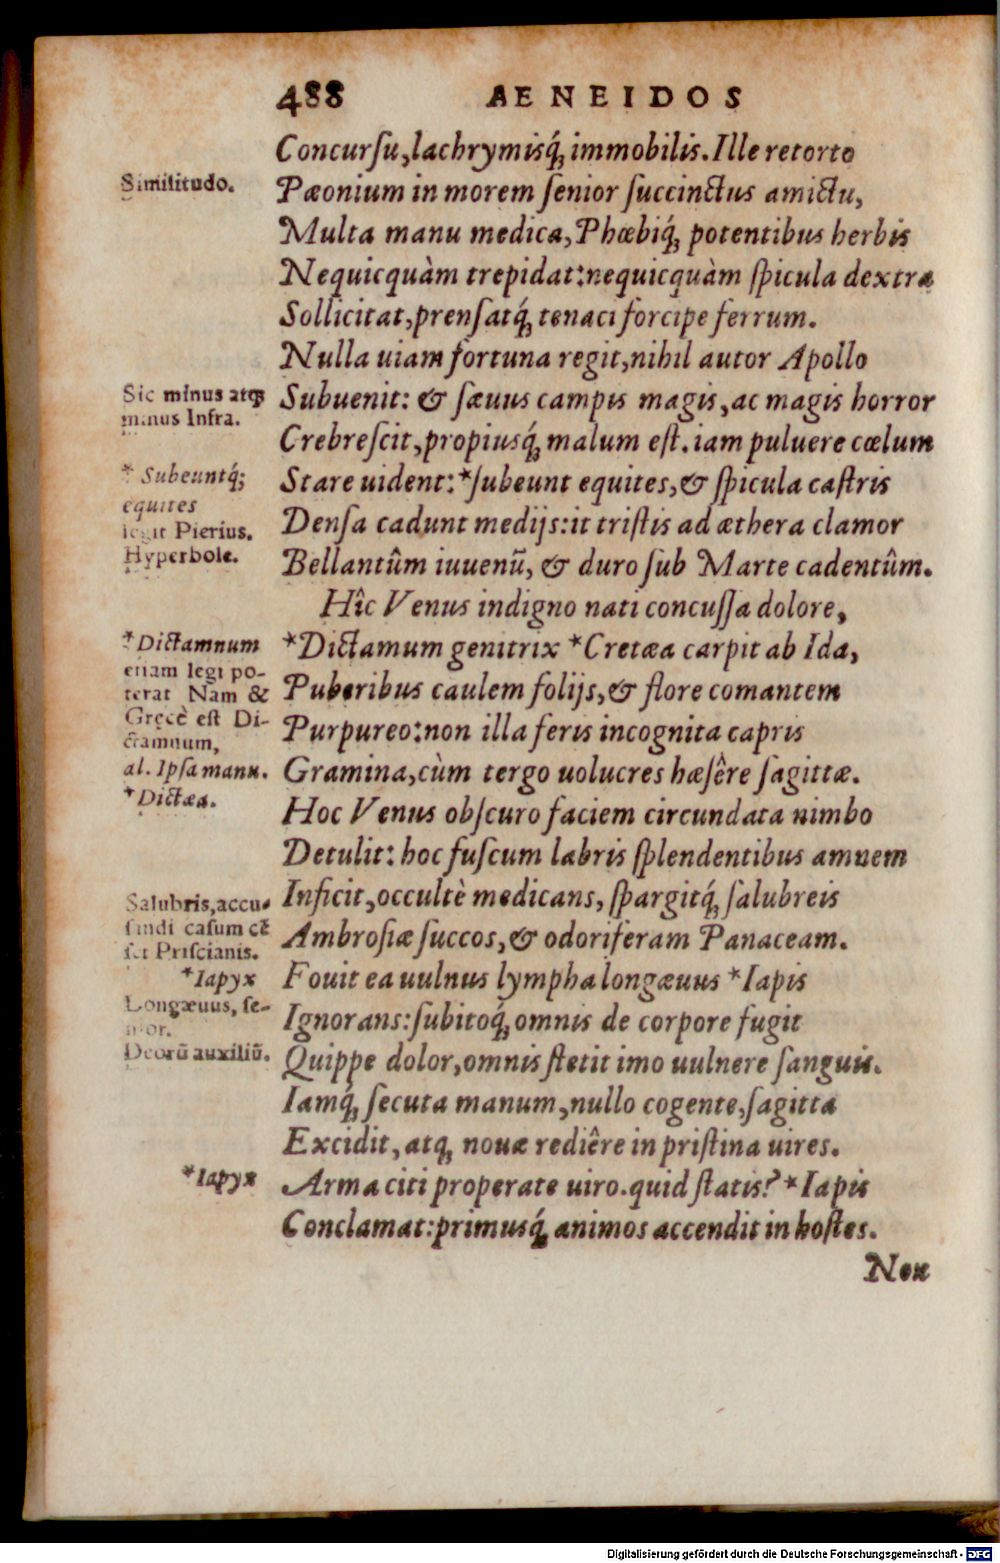 488 AENEIDOS
Concurſu,lachrymisq́; immobilis.Ille retorto
Similitudo.
Pæonium in morem ſenior ſuccinctus amictu,
Multa manu medica,Phœbiq́; potentibus herbis
Nequicquàm trepidat:nequicquàm ſpicula dextra
Sollicitat,prenſatq́; tenaci forcipe ferrum.
Nulla uiam fortuna regit,nihil autor Apollo
Sic minus atq;
minus Infra.
Subuenit: & ſæuus campis magis,ac magis horror
Crebreſcit,propiusq́; malum eſt.iam puluere cælum
* Subeuntq́;
equites
legit Pierius.
Hyperbole.
Stare uident:*ſubeunt equites,& ſpicula caſtris
Denſa cadunt medijs:it triſtis ad æthera clamor
Bellantûm iuuenũ, & duro ſub Marte cadentûm.
Hîc Venus indigno nati concuſſa dolore,
*Dictamnum
etiam legi po-
terat Nam &
Gręcè eſt Di-
ctamnum,
al. Ipſa manu.
*Dictæa.
*Dictamum genitrix *Cretæa carpit ab Ida,
Puberibus caulem folijs,& flore comantem
Purpureo:non illa feris incognita capris
Gramina,cùm tergo uolucres hæſêre ſagittæ.
Hoc Venus obſcuro faciem circundata nimbo
Detulit: hoc fuſcum labris ſplendentibus amnem
Salubris,accu-
ſandi caſum cẽ
ſet Priſcianis.
Inficit,occultè medicans, ſpargitq́; ſalubreis
Ambroſiæ ſuccos,& odoriferam Panaceam.
*Iapyx
Longæuus, ſe-
nior.
Deorũ auxiliũ.
Fouit ea uulnus lympha longæuus *Iapis
Ignorans:ſubitoq́; omnis de corpore fugit
Quippe dolor,omnis ſtetit imo uulnere ſanguis.
Iamq́; ſecuta manum,nullo cogente,ſagitta
Excidit, atq; nouæ rediêre in priſtina uires.
*Iapyx
Arma citi properate uiro.quid ſtatis? *Iapis
Conclamat:primusq́; animos accendit in hoſtes.
Non
Digitalisierung gefördert durch die Deutsche Forschungsgemeinschaft - DFG